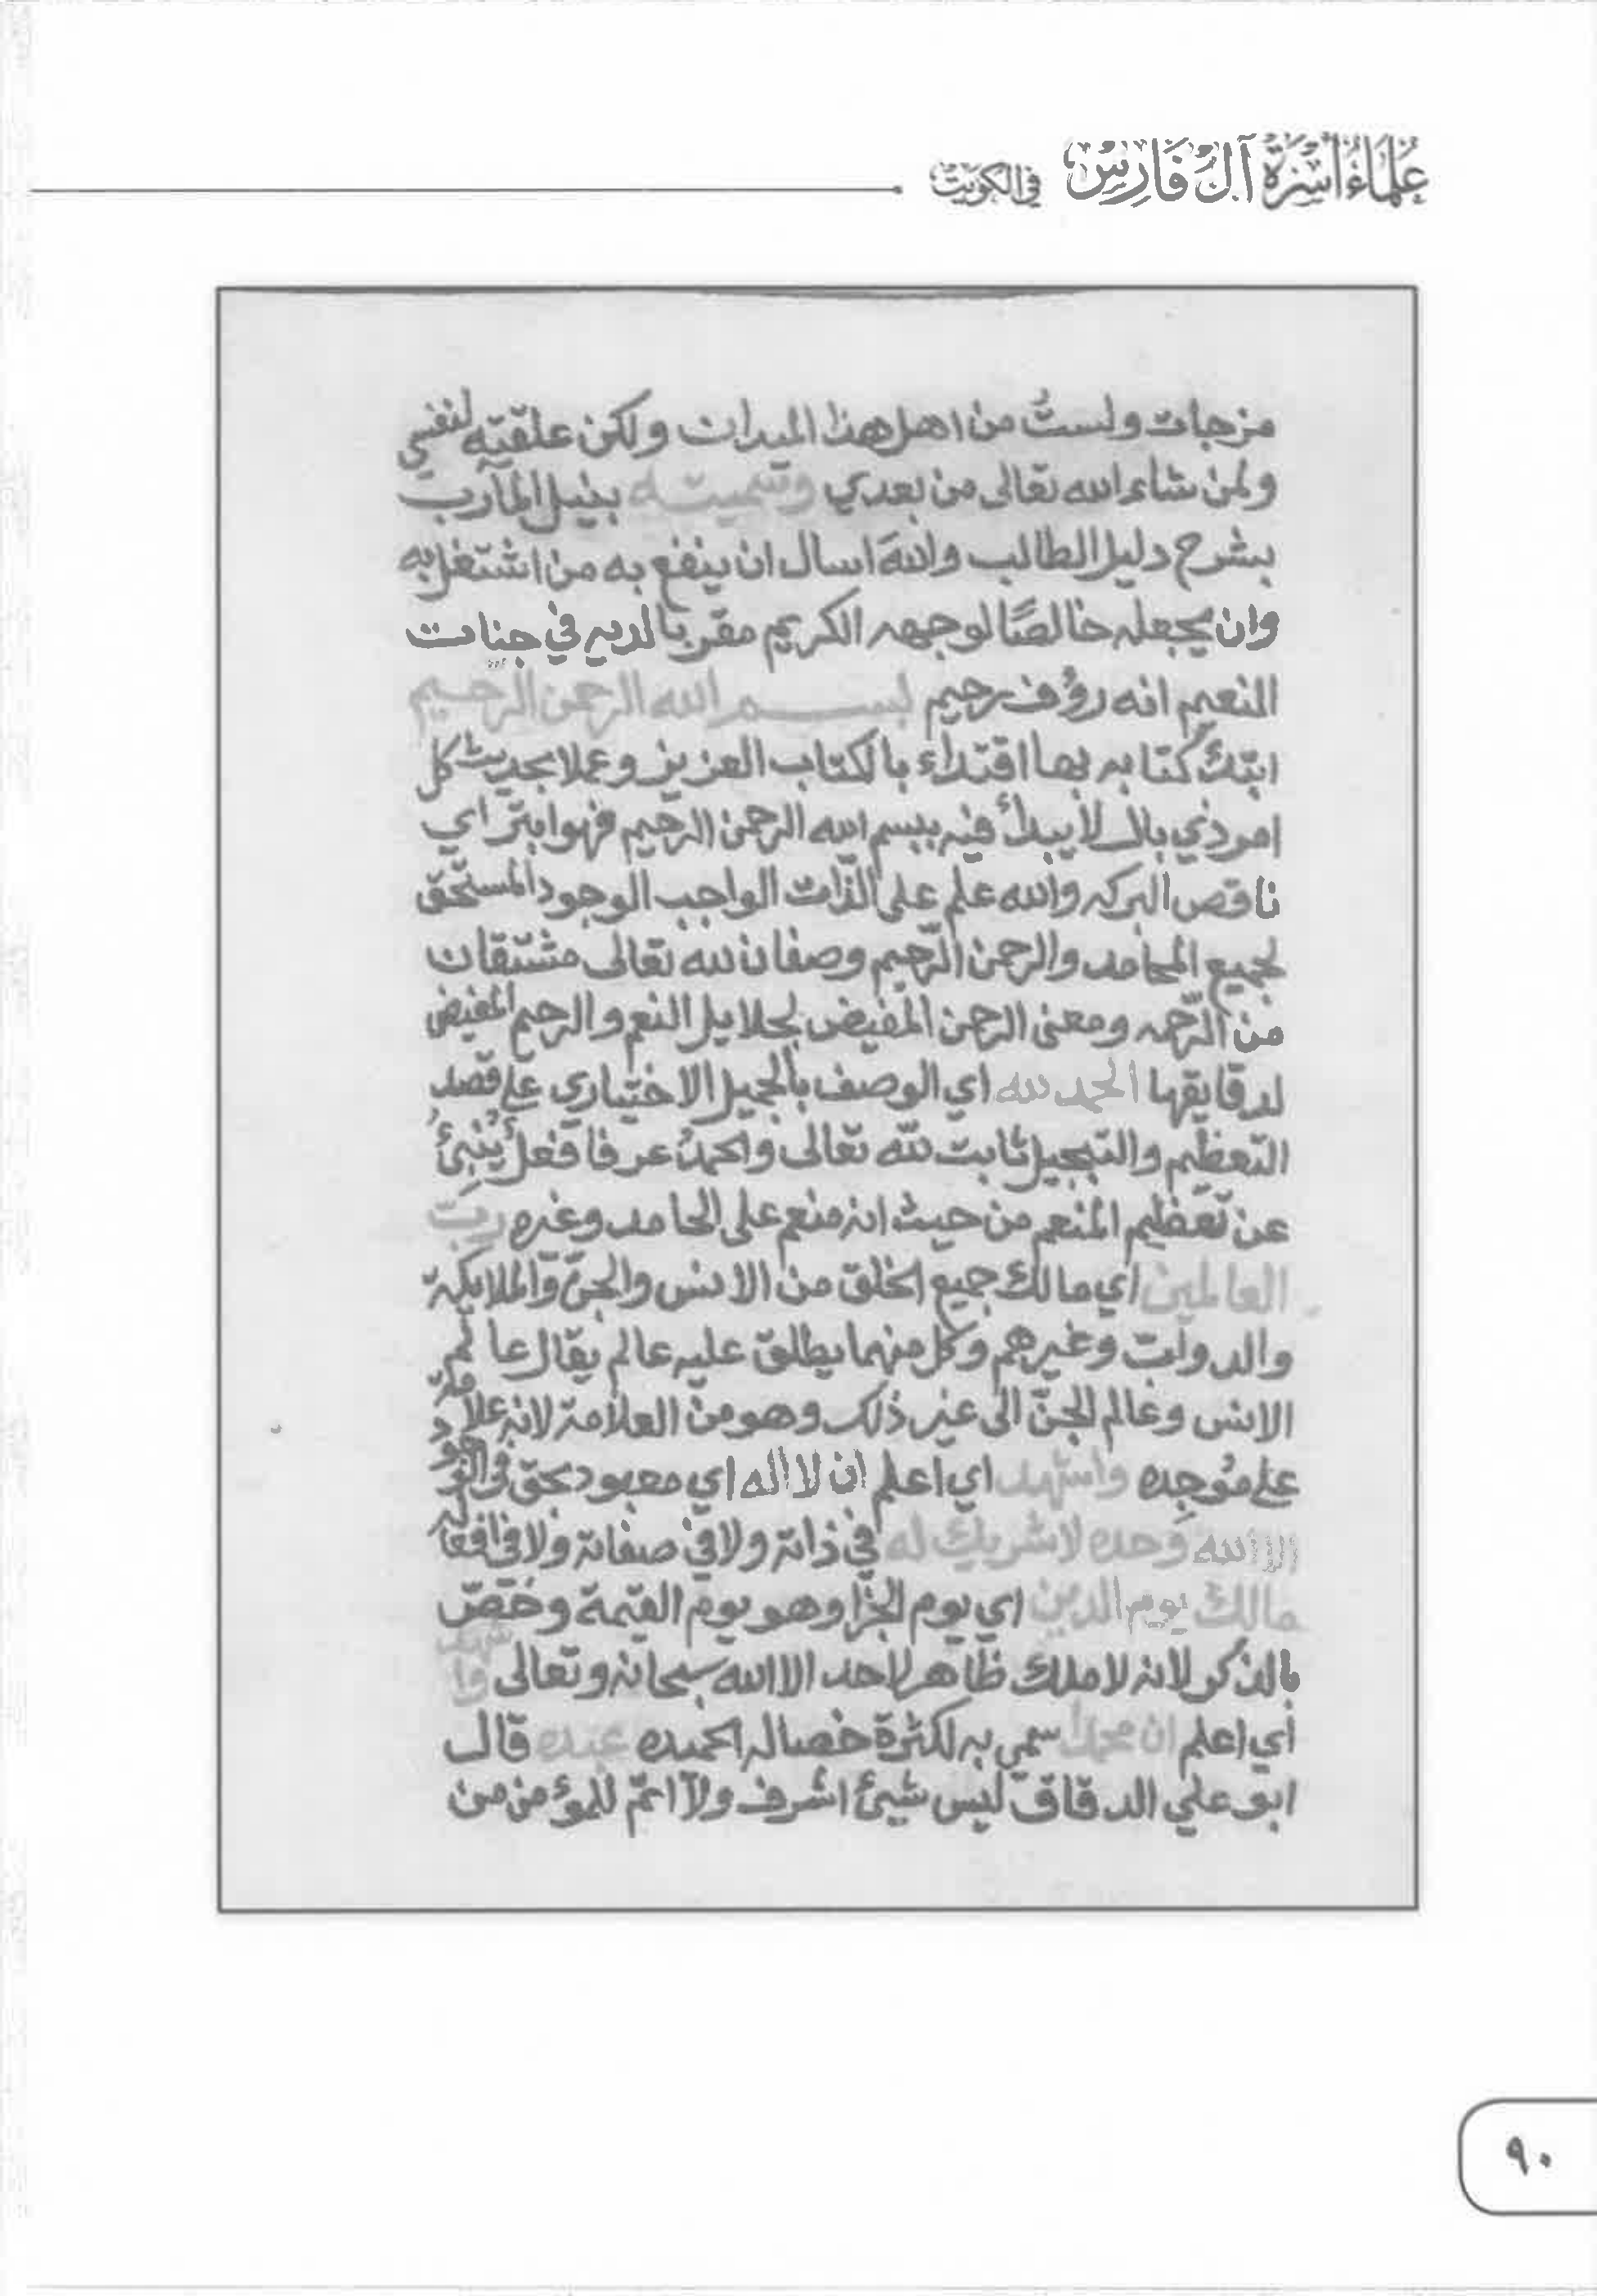 علماء أسرة آل فارس في الكويت
مزجات ولستُ من اهل هذا الميدان ولكن علقته لنفسي
ولمن شاء الله تعالى من بعدي وسميته بنيل المآرب
بشرح دليل الطالب والله اسال ان ينفع به من اشتغل به
وان يجعله خالصًا لوجهه الكريم مقربا لديه في جنات
النعيم انه رؤف رحيم بسم الله الرحمن الرحيم
ابتدأ كتابه بها اقتداء بالكتاب العزيز وعملا بحديث كل
امر ذي بال لا يبدأ فيه ببسم الله الرحمن الرحيم فهو ابتر اي
ناقص البركه والله علم على الذات الواجب الوجود المستحق
لجميع المحامد والرحمن الرّحيم وصفان لله تعالى مشتقان
من الرّحمه ومعنى الرحمن المفيض لجلايل النعم والرحيم المفيض
لدقايقها الحمد لله اي الوصف بالجميل الاختياري على قصد
التعظيم والتبجيل ثابت لله تعالى والحمدُ عرفا فعلٌ يُنْبِئُ
عن تعظيم المنعم من حيث انه منعم على الحامد وغيره ربّ
العالمين اي مالك جميع الخلق من الانس والجنّ والملايكة
والدوابّ وغيرهم وكل منهما يطلق عليه عالم يقال عالم
الانس وعالم الجنّ الى غير ذلك وهو من العلامة لانه علامة
على مُوجِده واشهد اي اعلم ان لا اله اي معبود بحق في الوجود
الا الله وحده لا شريك له في ذاته ولا في صفاته ولا في افعاله
مالك يوم الدين اي يوم الجزا وهو يوم القيمة وخصّ
بالذكر لانه لا ملك ظاهر لاحد الا الله سبحانه وتعالى واشهد
أي اعلم ان محمدا سمي به لكثرة خصاله الحميده عبده قال
ابو علي الدقاق ليس شيئ اشرف ولا اتمّ للمؤمن من
٩٠